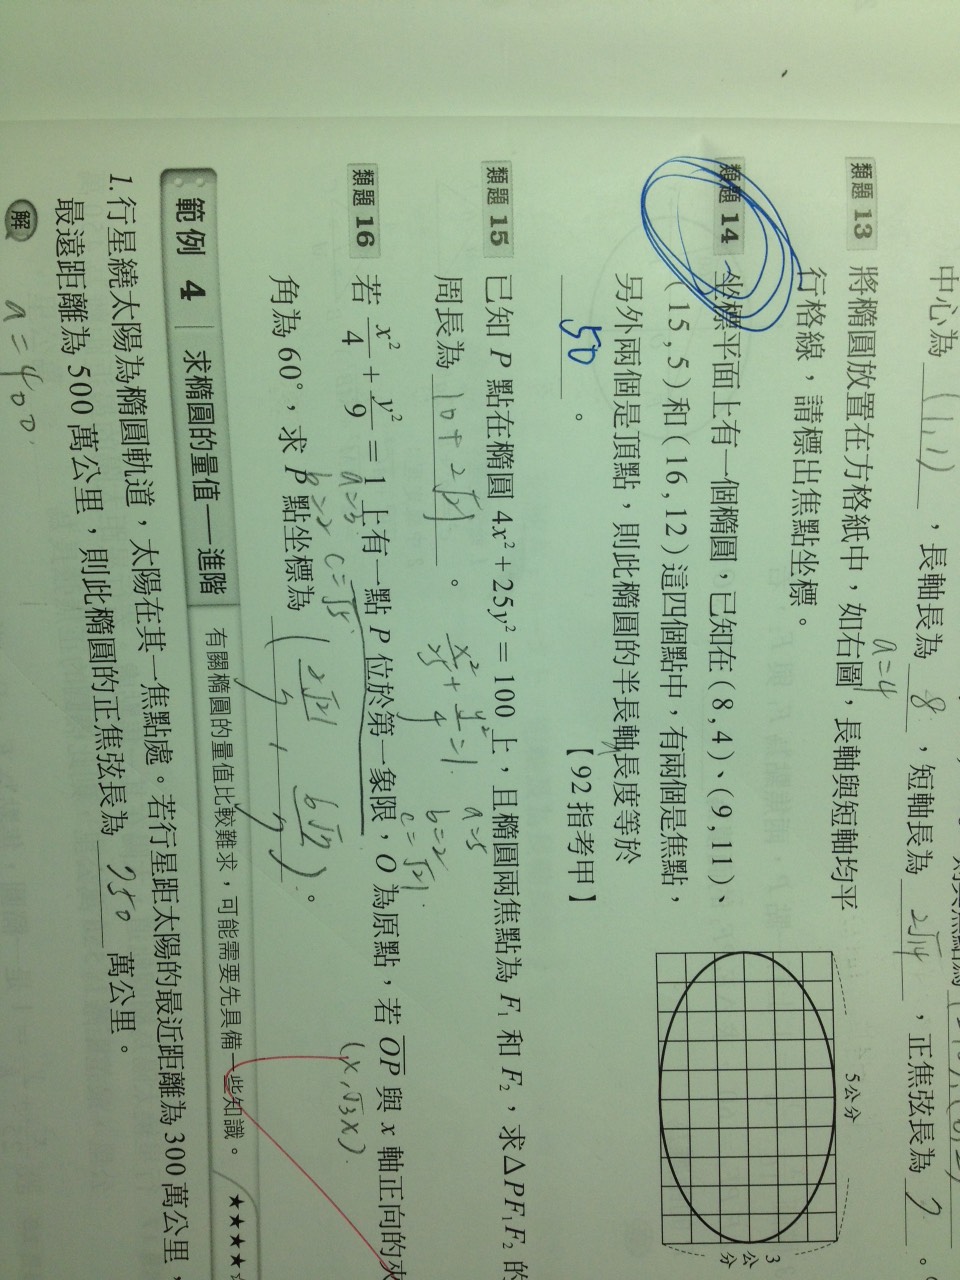 中心為 (1,1) ，長軸長為 8 ，短軸長為 2√14 ，正焦弦長為 7 。
a=4
類題 13 將橢圓放置在方格紙中，如右圖，長軸與短軸均平
行格線，請標出焦點坐標。
5公分
3公分
類題 14 坐標平面上有一個橢圓，已知在(8,4)、(9,11)、
(15,5)和(16,12)這四個點中，有兩個是焦點，
另外兩個是頂點，則此橢圓的半長軸長度等於
50 。 【92指考甲】
類題 15 已知 P 點在橢圓 4x²+25y²=100 上，且橢圓兩焦點為 F₁ 和 F₂，求△PF₁F₂ 的
周長為 10+2√21 。
x²/25 + y²/4 = 1.
a=5
b=2
c=√21.
類題 16 若 x²/4 + y²/9 = 1 上有一點 P 位於第一象限，O 為原點，若 OP 與 x 軸正向的夾
a=3
b=2 c=√5.
(x,√3x).
角為 60°，求 P 點坐標為 (2√21/7 , 6√7/7) 。
範例 4 求橢圓的量值—進階 有關橢圓的量值比較難求，可能需要先具備一些知識。 ★★★★☆
1. 行星繞太陽為橢圓軌道，太陽在其一焦點處。若行星距太陽的最近距離為 300 萬公里，
最遠距離為 500 萬公里，則此橢圓的正焦弦長為 750 萬公里。
解
a=400.